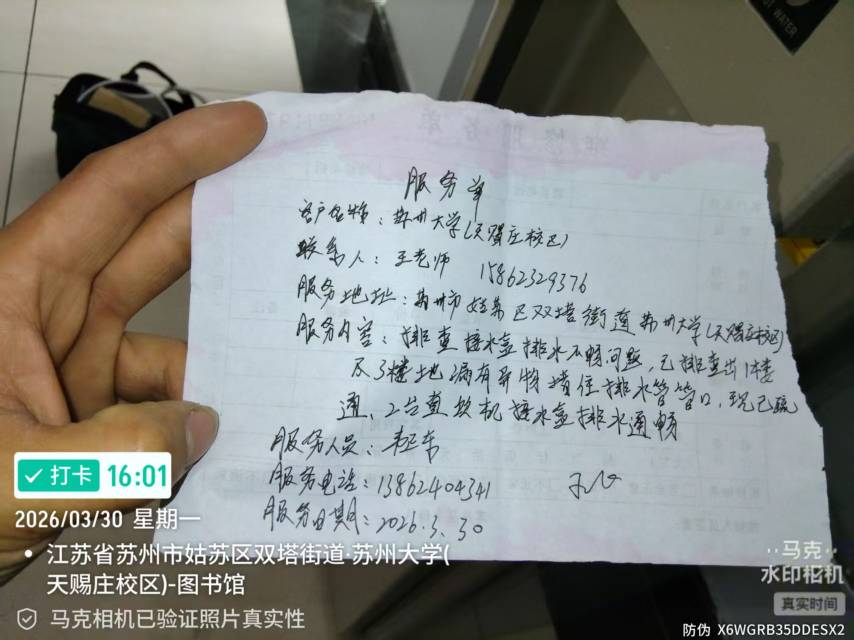 HOT WATER
服务单
客户名称：苏州大学(天赐庄校区)
联系人：王老师 15862329376
服务地址：苏州市姑苏区双塔街道苏州大学(天赐庄校区)
服务内容：排查接水盒排水不畅问题，已排查出1楼
及3楼地漏有异物堵住排水管管口，现已疏
通、2台直饮机接水盒排水通畅
服务人员：
服务电话：13862404341
服务日期：2026.3.30
打卡 16:01
2026/03/30 星期一
江苏省苏州市姑苏区双塔街道·苏州大学(
天赐庄校区)-图书馆
马克相机已验证照片真实性
马克
水印相机
真实时间
防伪 X6WGRB35DDESX2